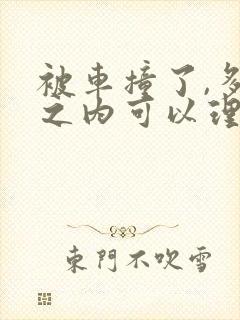 被車撞了,多
之内可以理
東門不吹雪